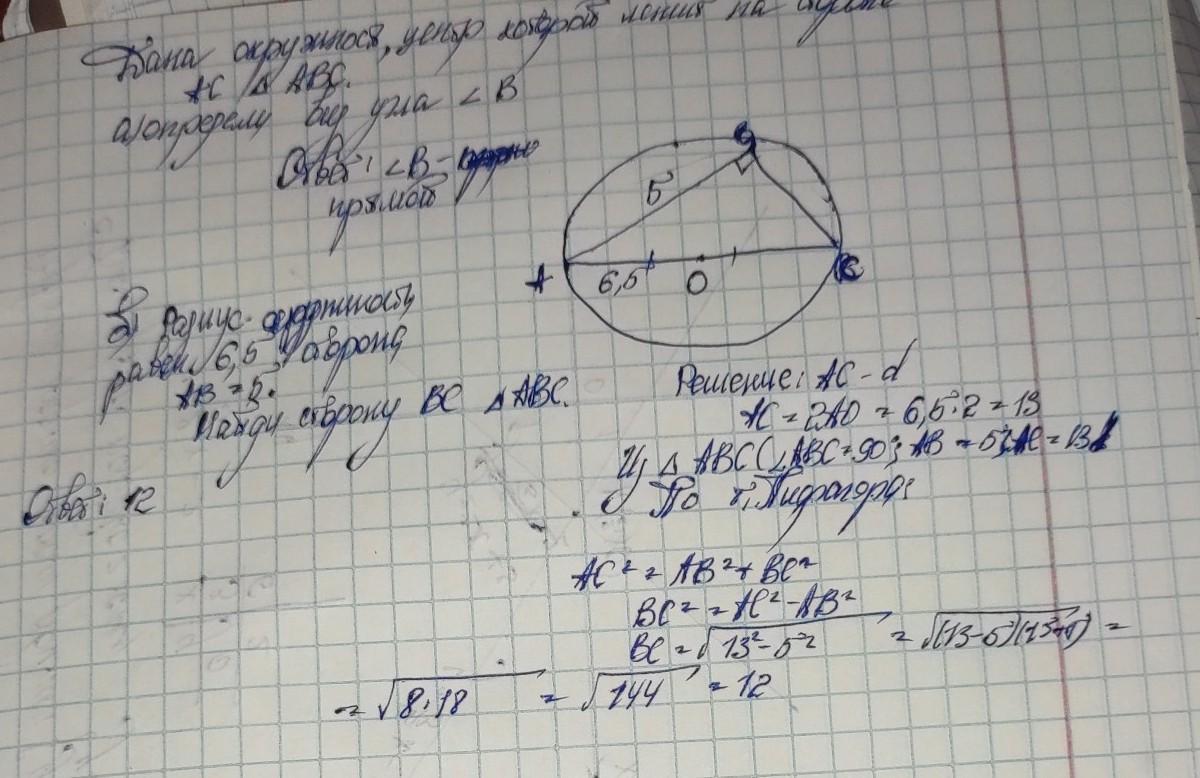 Дана окружност, центр которой лежит на
AC Δ ABC.
а) определи вид угла ∠B
Ответ: ∠B -
прямой
B
5
A
6,5
O
C
б) Радиус окружности
равен 6,5, сторона
AB = 5.
Найди сторону BC Δ ABC.
Ответ: 12
Решение: AC - d
AC = 2AO = 6,5·2 = 13
Из Δ ABC (∠ABC=90; AB = 5; AC = 13
По т. Пифагора:
AC² = AB² + BC²
BC² = AC² - AB²
BC = √13² - 5² = √(13-5)(13+5) =
= √8·18 = √144 = 12